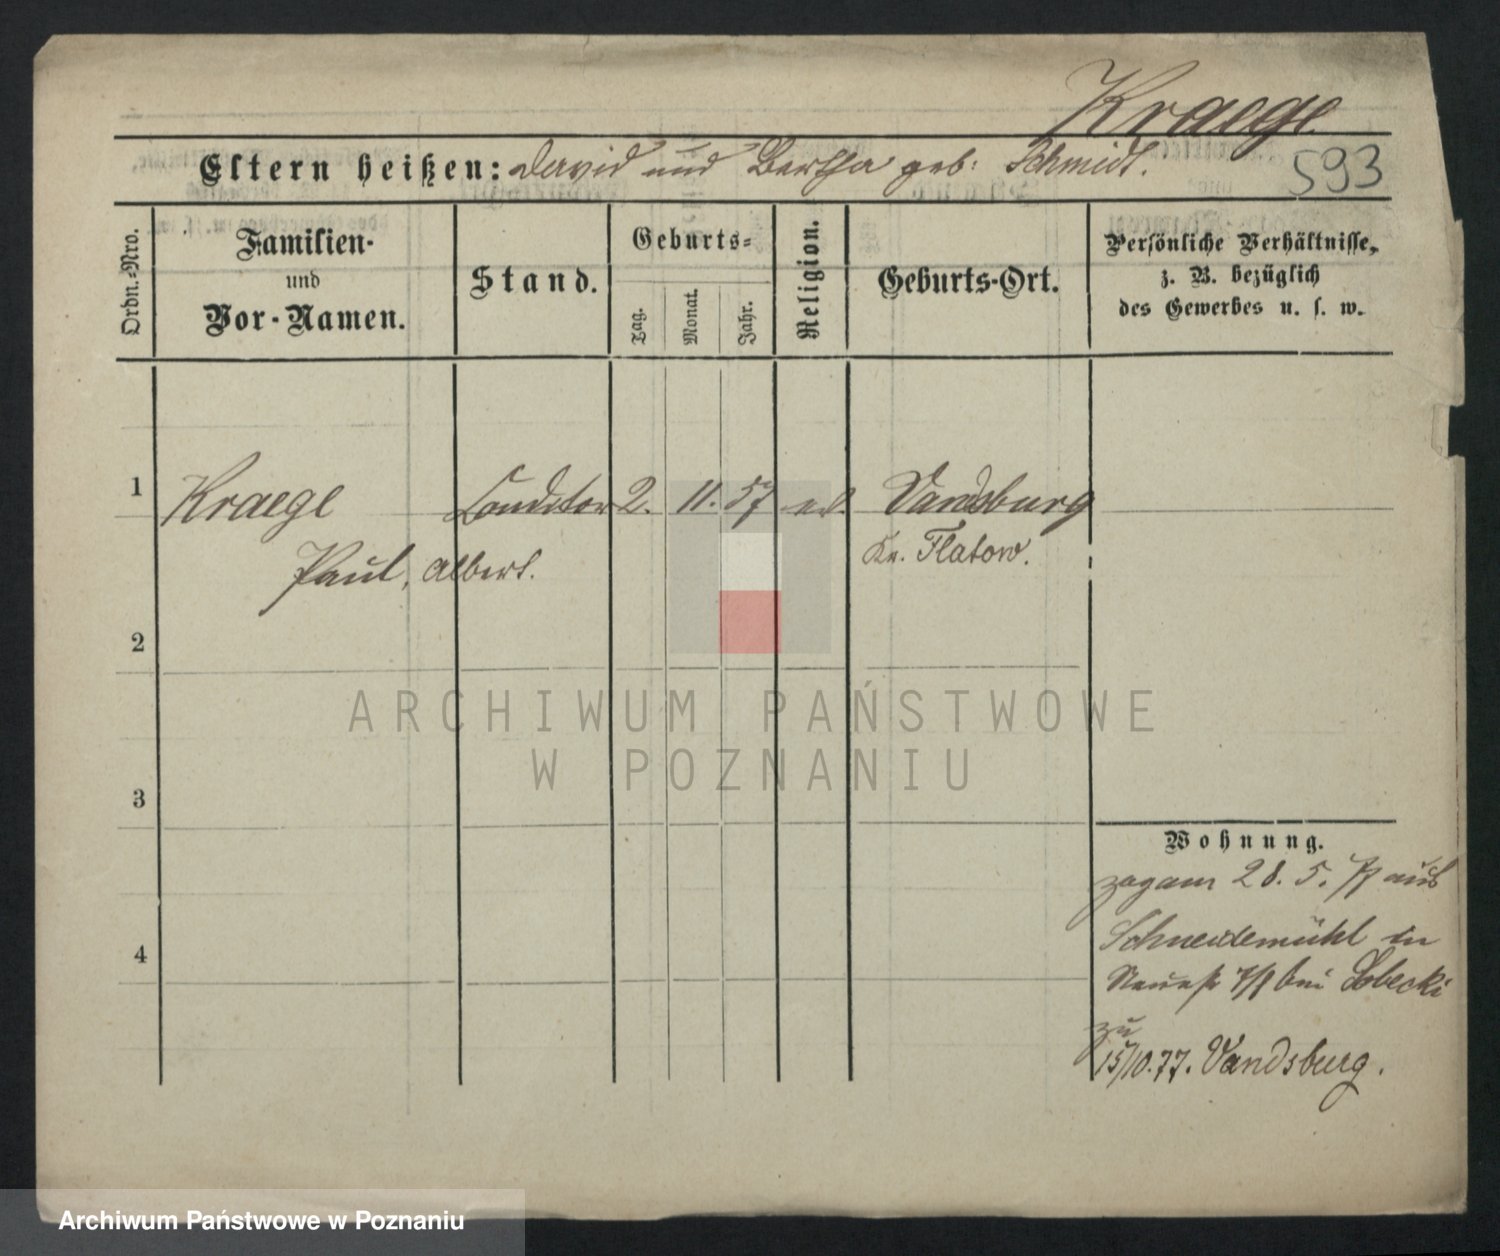 Kraege
Eltern heißen: David und Bertha geb: Schmidt.
593
Ordn.-Nro.
Familien-
und
Vor-Namen.
Stand.
Geburts-
Tag.
Monat.
Jahr.
Religion.
Geburts-Ort.
Persönliche Verhältnisse,
z. B. bezüglich
des Gewerbes u. s. w.
1 Kraege Conditor 2. 11. 57 ev. Vandsburg
Paul, Albert. Kr. Flatow.
2
3
4
Wohnung.
28. 5. 77 aus
Schneidemühl in
7/8 bei Lobecki
zu
15/10.77. Vandsburg.
ARCHIWUM PAŃSTWOWE
W POZNANIU
Archiwum Państwowe w Poznaniu